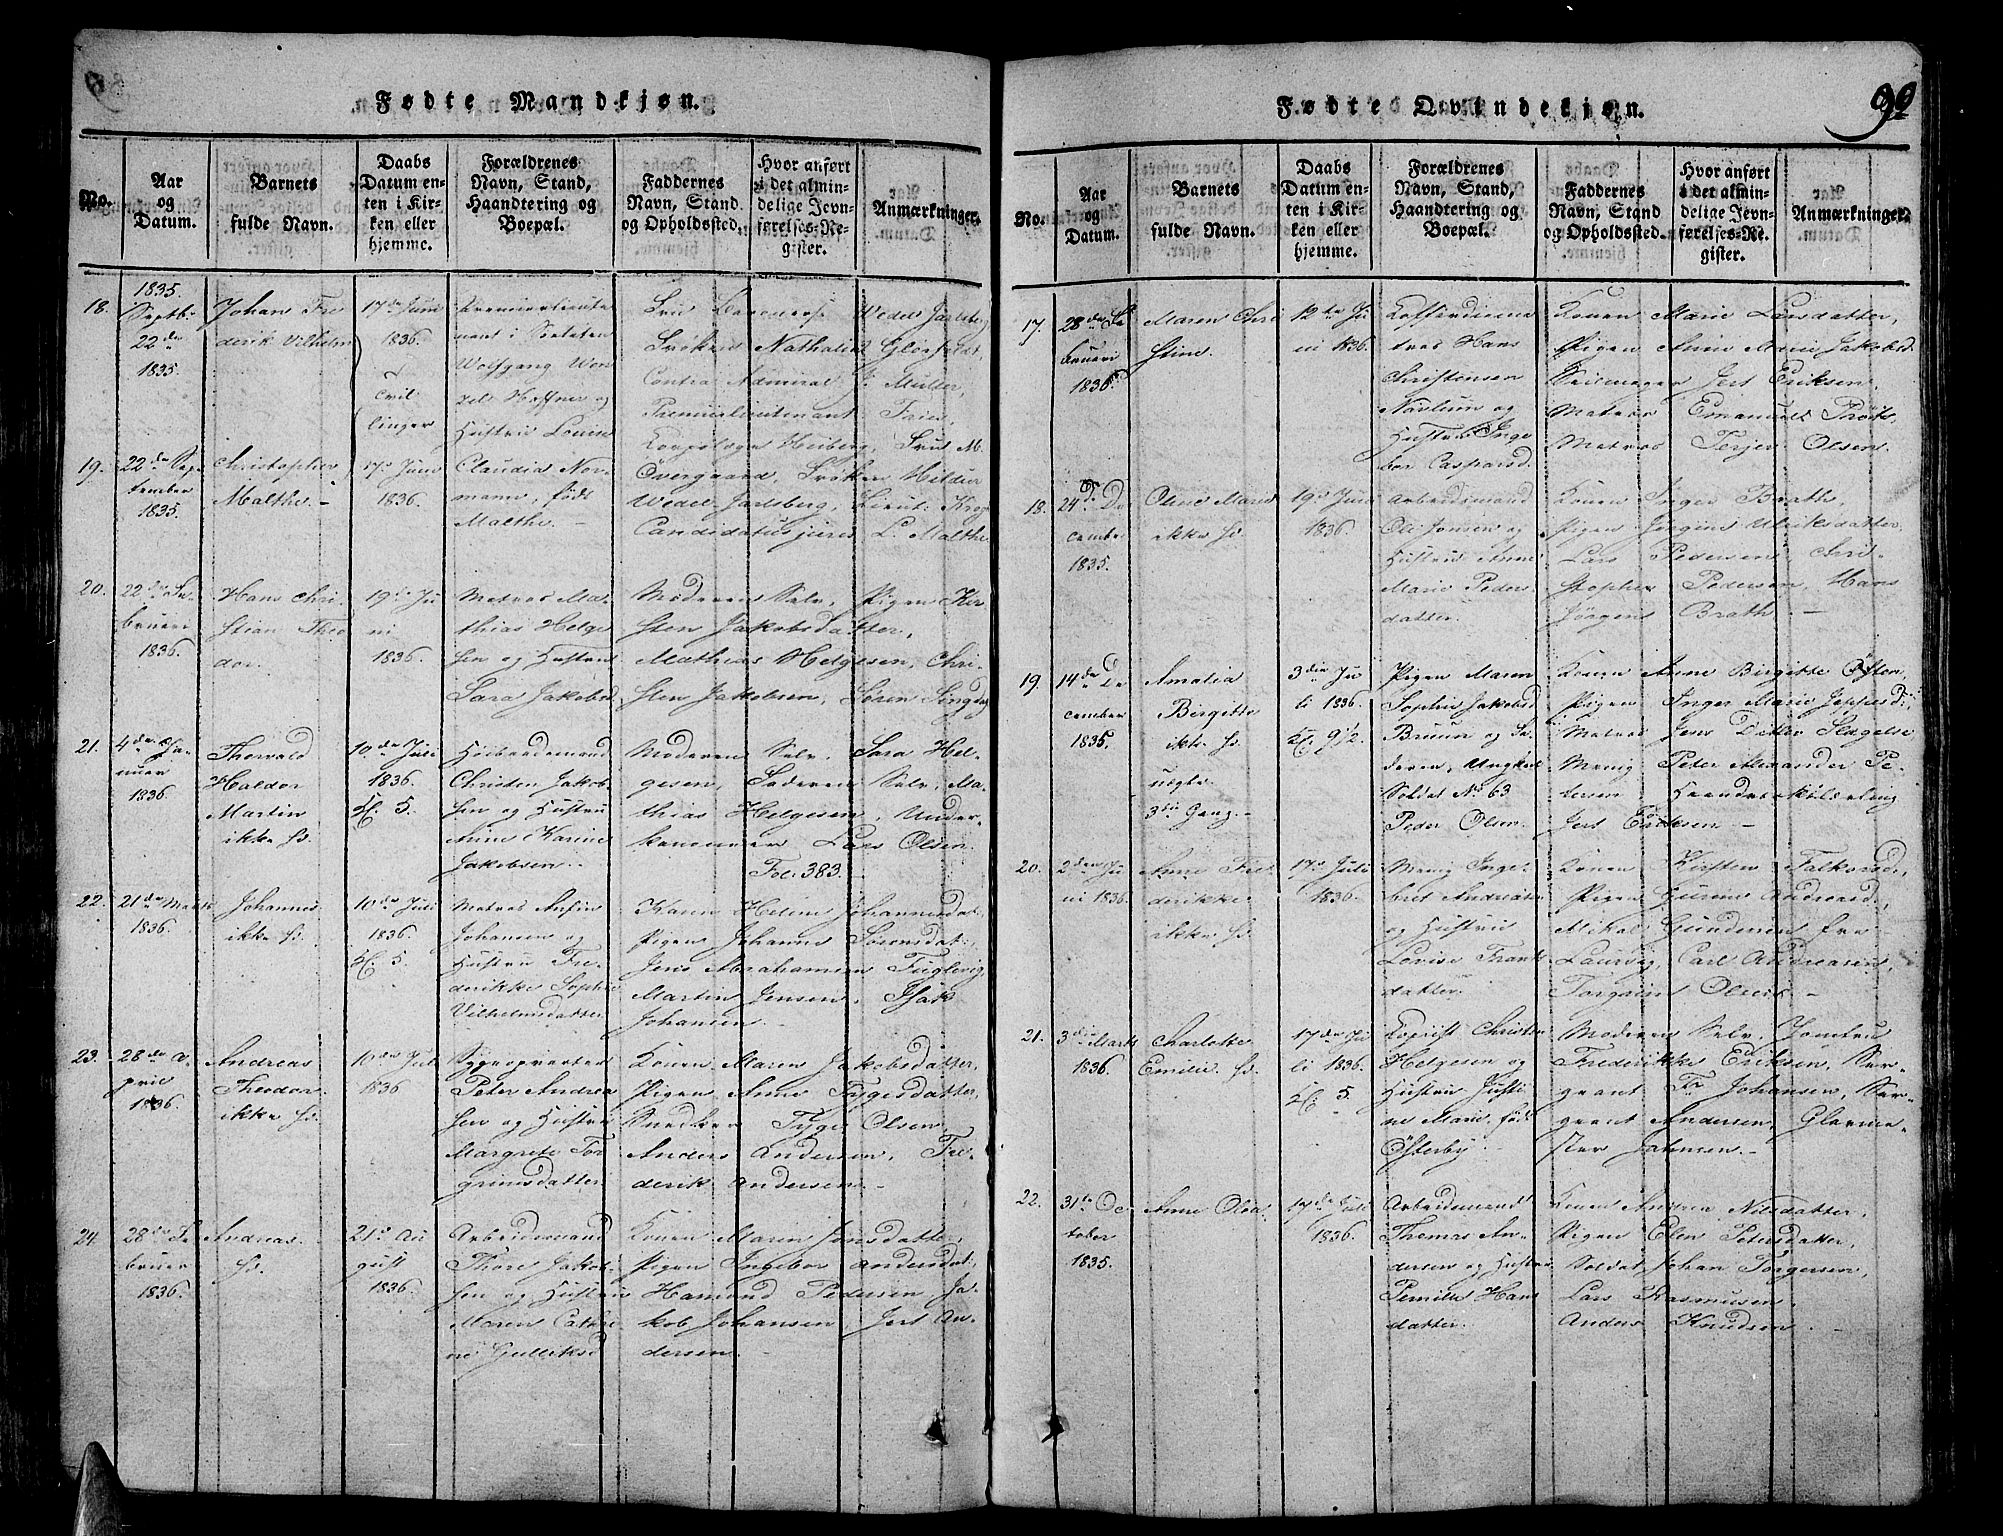 Fødte Mandkjøn.
No.
Aar og Datum.
Barnets fulde Navn.
Daabs Datum enten i Kirken eller hjemme.
Forældrenes Navn, Stand, Haandtering og Boepæl.
Faddernes Navn, Stand og Opholdssted.
Hvor anført i det almindelige Jevnførelses-Register.
Anmærkninger.
18.
1835.
Septbr
22de
1835.
Johan Fre
derik Vilhelm
17de Juni
1836.
Premierlieute
nant i Søetaten
Wolfgang Wen
zel Haffner og
Hustru Lovise
Fru Baronesse Wedel Jarlsberg
Frøken Nathalia
Contra Admiral J. Müller,
Premierlieutenant
Heiberg, Fru M.
19.
22de Sep
tember
1835.
Christopher
Malthe. -
17de Juni
1836.
Claudia Nor
mann, født
Malthe. -
Overgaard, Frøken Hilda
Wedel Jarlsberg, Lieut: Krog
Candidatus juris L. Malthe
20.
22de Fe
bruar
1836.
Hans Chri
stian Theo
dor.
19de Ju
ni
1836.
Matros Ma
thias Helge
sen og Hustru
Sara Jakobsd.
Moderen Selv, Pigen Kir
sten Jakobsdatter,
Mathias Helgesen, Chri-
sten Jakobsen, Søren
21.
4de Ja
nuar
1836.
Thorvald
Haldor
Martin
ikke hd.
10de Juli
1836.
Kl. 5.
Christen Jakob
sen og Hustru
Anne Karine
Jakobsen. -
Moderen Selv, Sara Hel
gesen, Faderen Selv, Ma
thias Helgesen, Under-
kanoneer Lars Olsen.
Fol. 383.
22.
21de Marts
1836.
Johannes
ikke hd.
10de Juli
1836.
Kl. 5.
Matros
Johansen og
Hustru Fre-
derikke Sophie
Vilhelmsdatter
Karen Heline Johannesdat:
Pigen Johanne Sørensdat:
Jens Abrahamsen Fuglevig
Martin Jensen, Isak
Johansen. -
23.
28de A
pril
1836.
Andreas
Theodor
ikke hd.
10de Juli
1836
Peter Andrea
sen og Hustru
Margrete Tor
grimsdatter
Konen Maren Jakobsdatter,
Pigen Anne Tygesdatter,
Snedker Tyge Olsen,
Anders Andersen, Fre-
derik Andersen. -
24
28de Fe
bruar
1836.
Andreas.
hd.
21de Au
gust
1836.
Arbeidsmand
Thore Jakob-
sen og Hustru
Maren Cathri
ne Gulliksd
Konen Maren Jensdatter,
Pigen Ingebor Andersdat:
Hamund Pedersen Ja-
kob Johansen, Jert An-
dersen. -
99
Fødte Qvindekjøn.
No.
Aar og Datum.
Barnets fulde Navn.
Daabs Datum enten i Kirken eller hjemme.
Forældrenes Navn, Stand, Haandtering og Boepæl.
Faddernes Navn, Stand og Opholdssted.
Hvor anført i det almindelige Jevnførelses-Register.
Anmærkninger.
17.
28de Fe
bruari
1836
Maren Chri
stine.
12te Ju
ni 1836.
Hans
Christensen
Nøvlum og
Hustru Inge
bor Caspersd.
Konen Marie Larsdatter,
Pigen Anne Marie Jakobsd.
Jert Eriksen,
Matros Emanuel
Matros Terjer Olsen.
18.
24de De
cember
1835.
Oline Marie
ikke hd.
19de Juni
1836.
Arbeidsmand
Ole Jensen og
Hustru Anne
Marie Peders
datter.
Konen Inger Brath,
Pigen Jørgine Ulriksdatter,
Lars Pedersen, Chri-
stopher Pedersen, Hans
Jørgen Brath. -
19.
14de De
cember
1835.
Amalia
Birgitte
ikke hd.
uægte
3die Gang. -
3die Ju
li 1836.
Kl. 9½.
Pigen Maren
Sophie Jakobsd
Bruun og Fa
deren, Ungkarl
Soldat No 63
Peder Olsen.
Konen Anne Birgitte
Pigen Inger Marie Jeppesd:
Matros Jens Ditlev Slagelse
Menig Peter Alexander Pe-
dersen
Jert Eriksen -
20.
2den Ju
ni 1836
Anne Fre
derikke
ikke hd.
17de Juli
1836.
Menig Inge
bret Andreasen
og Hustru
Lovise Frants
datter.
Konen Kirsten Falkorsd.,
Pigen Gurine Andreasd.,
Mikal Gundersen fra
Laurvig, Carl Andreasen,
Torgrim Olsen -
21.
3die Marts
1836.
Charlotte
Emilie hd.
17de Ju
li 1836.
Kl. 5.
Kopist Christen
Helgesen og
Hustru Justi
ne Marie, født
Østerby. -
Moderen Selv, Jomfru
Frederikke Eriksen, Ser-
geant Fr Johansen, Ser-
geant Andersen, Glarme-
ster Johnsen. -
22.
31te Oc
tober
1835.
Anne Olea.
17de Juli
1836.
Arbeidsmand
Thomas An-
dersen og Hustru
Pernille Hans
datter.
Konen Andrea Nilsdatter,
Pigen Elen Petersdatter,
Soldat Johan Torgersen,
Lars Rasmusen
Anders Knudsen. -